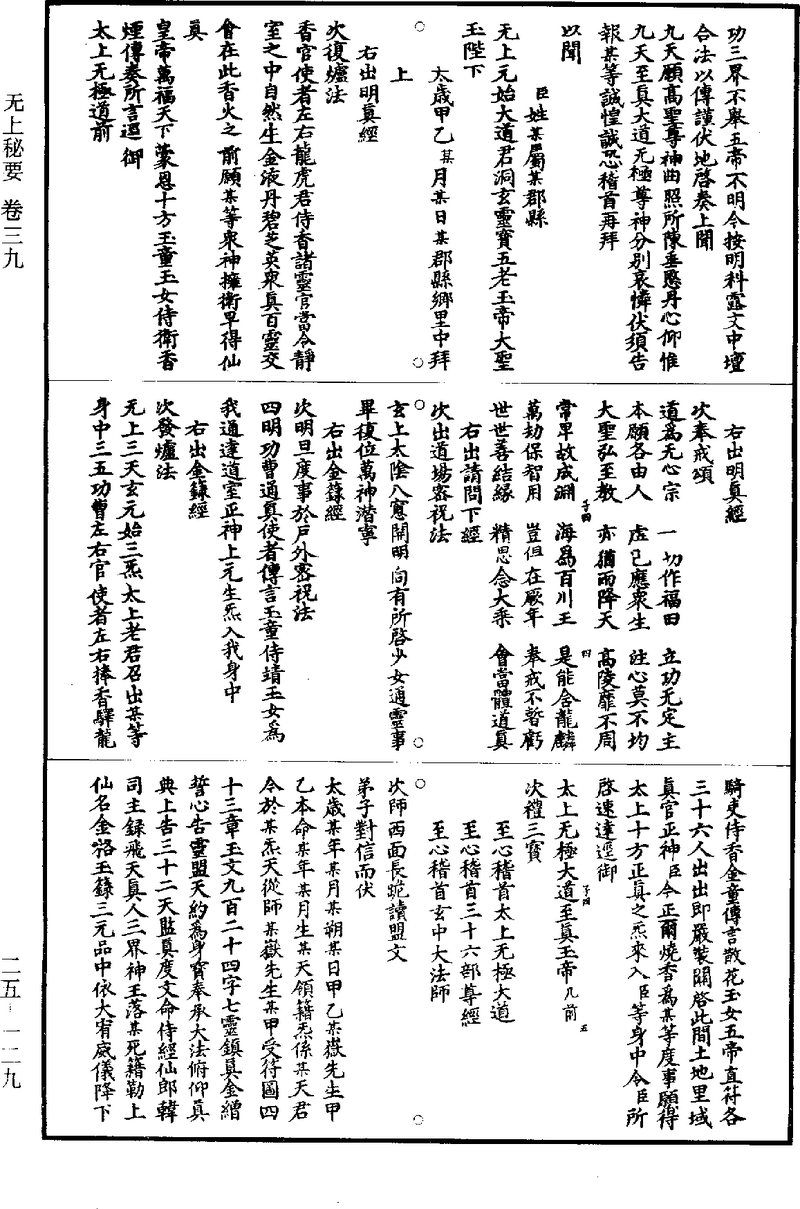 功三界不舉五帝不明今按明科露文中壇
合法以傳謹伏地啓奏上聞
九天願高聖尊神曲照所陳垂愍丹心仰惟
九天至真大道无極尊神分別哀憐伏須告
報某等誠惶誠恐稽首再拜
以聞
臣姓某屬某郡縣
无上元始大道君洞玄靈寶五老玉帝大聖
玉陛下
太歲甲乙某月某日某郡縣鄉里中拜
上
右出明真經
次復爐法
香官使者左右龍虎君侍香諸靈官當令靜
室之中自然生金液丹碧芝英衆真百靈交
會在此香火之前願某等衆神擁衛早得仙
真
皇帝萬福天下蒙恩十方玉童玉女侍衛香
煙傳奏所言逕御
太上无極道前
右出明真經
次奉戒頌
道爲无心宗 一切作福田 立功无定主
本願各由人 虛己應衆生 注心莫不均
大聖弘至教 亦猶雨降天 高陵靡不周
常卑故成淵 海爲百川王 是能舍龍麟
萬劫保智用 豈但在厥年 奉戒不暫虧
世世善結緣 精思念大乘 會當體道真
右出請問下經
次出道場密祝法
玄上太陰八窻開明向有所啓少女通靈事
畢復位萬神潜寧
右出金籙經
次明旦度事於戶外密祝法
四明功曹通真使者傳言玉童侍靖玉女爲
我通達道室正神上元生炁入我身中
右出金籙經
次發爐法
无上三天玄元始三炁太上老君召出某等
身中三五功曹左右官使者左右捧香驛龍
騎吏侍香金童傳言散花玉女五帝直符各
三十六人出出即嚴裝關啓此間土地里域
真官正神臣今正爾燒香爲某等度事願得
太上十方正真之炁來入臣等身中令臣所
啓速達逕御
太上无極大道至真玉帝几前
次禮三寶
至心稽首太上无極大道
至心稽首三十六部尊經
至心稽首玄中大法師
次師西面長跪讀盟文
弟子對信而伏
太歲某年某月某朔某日甲乙某嶽先生甲
乙本命某年某月生某天領籍炁係某天君
今於某炁天從師某嶽先生某甲受符圖四
十三章玉文九百二十四字七靈鎮真金繒
誓心告靈盟天約爲身寶奉承大法俯仰真
典上告三十二天監真度文命侍經仙郎韓
司主録飛天真人三界神王落某死籍勒上
仙名金格玉籙三元品中依大宥威儀降下
子四
四
子四
五
无上秘要 卷三九
二五-一二九